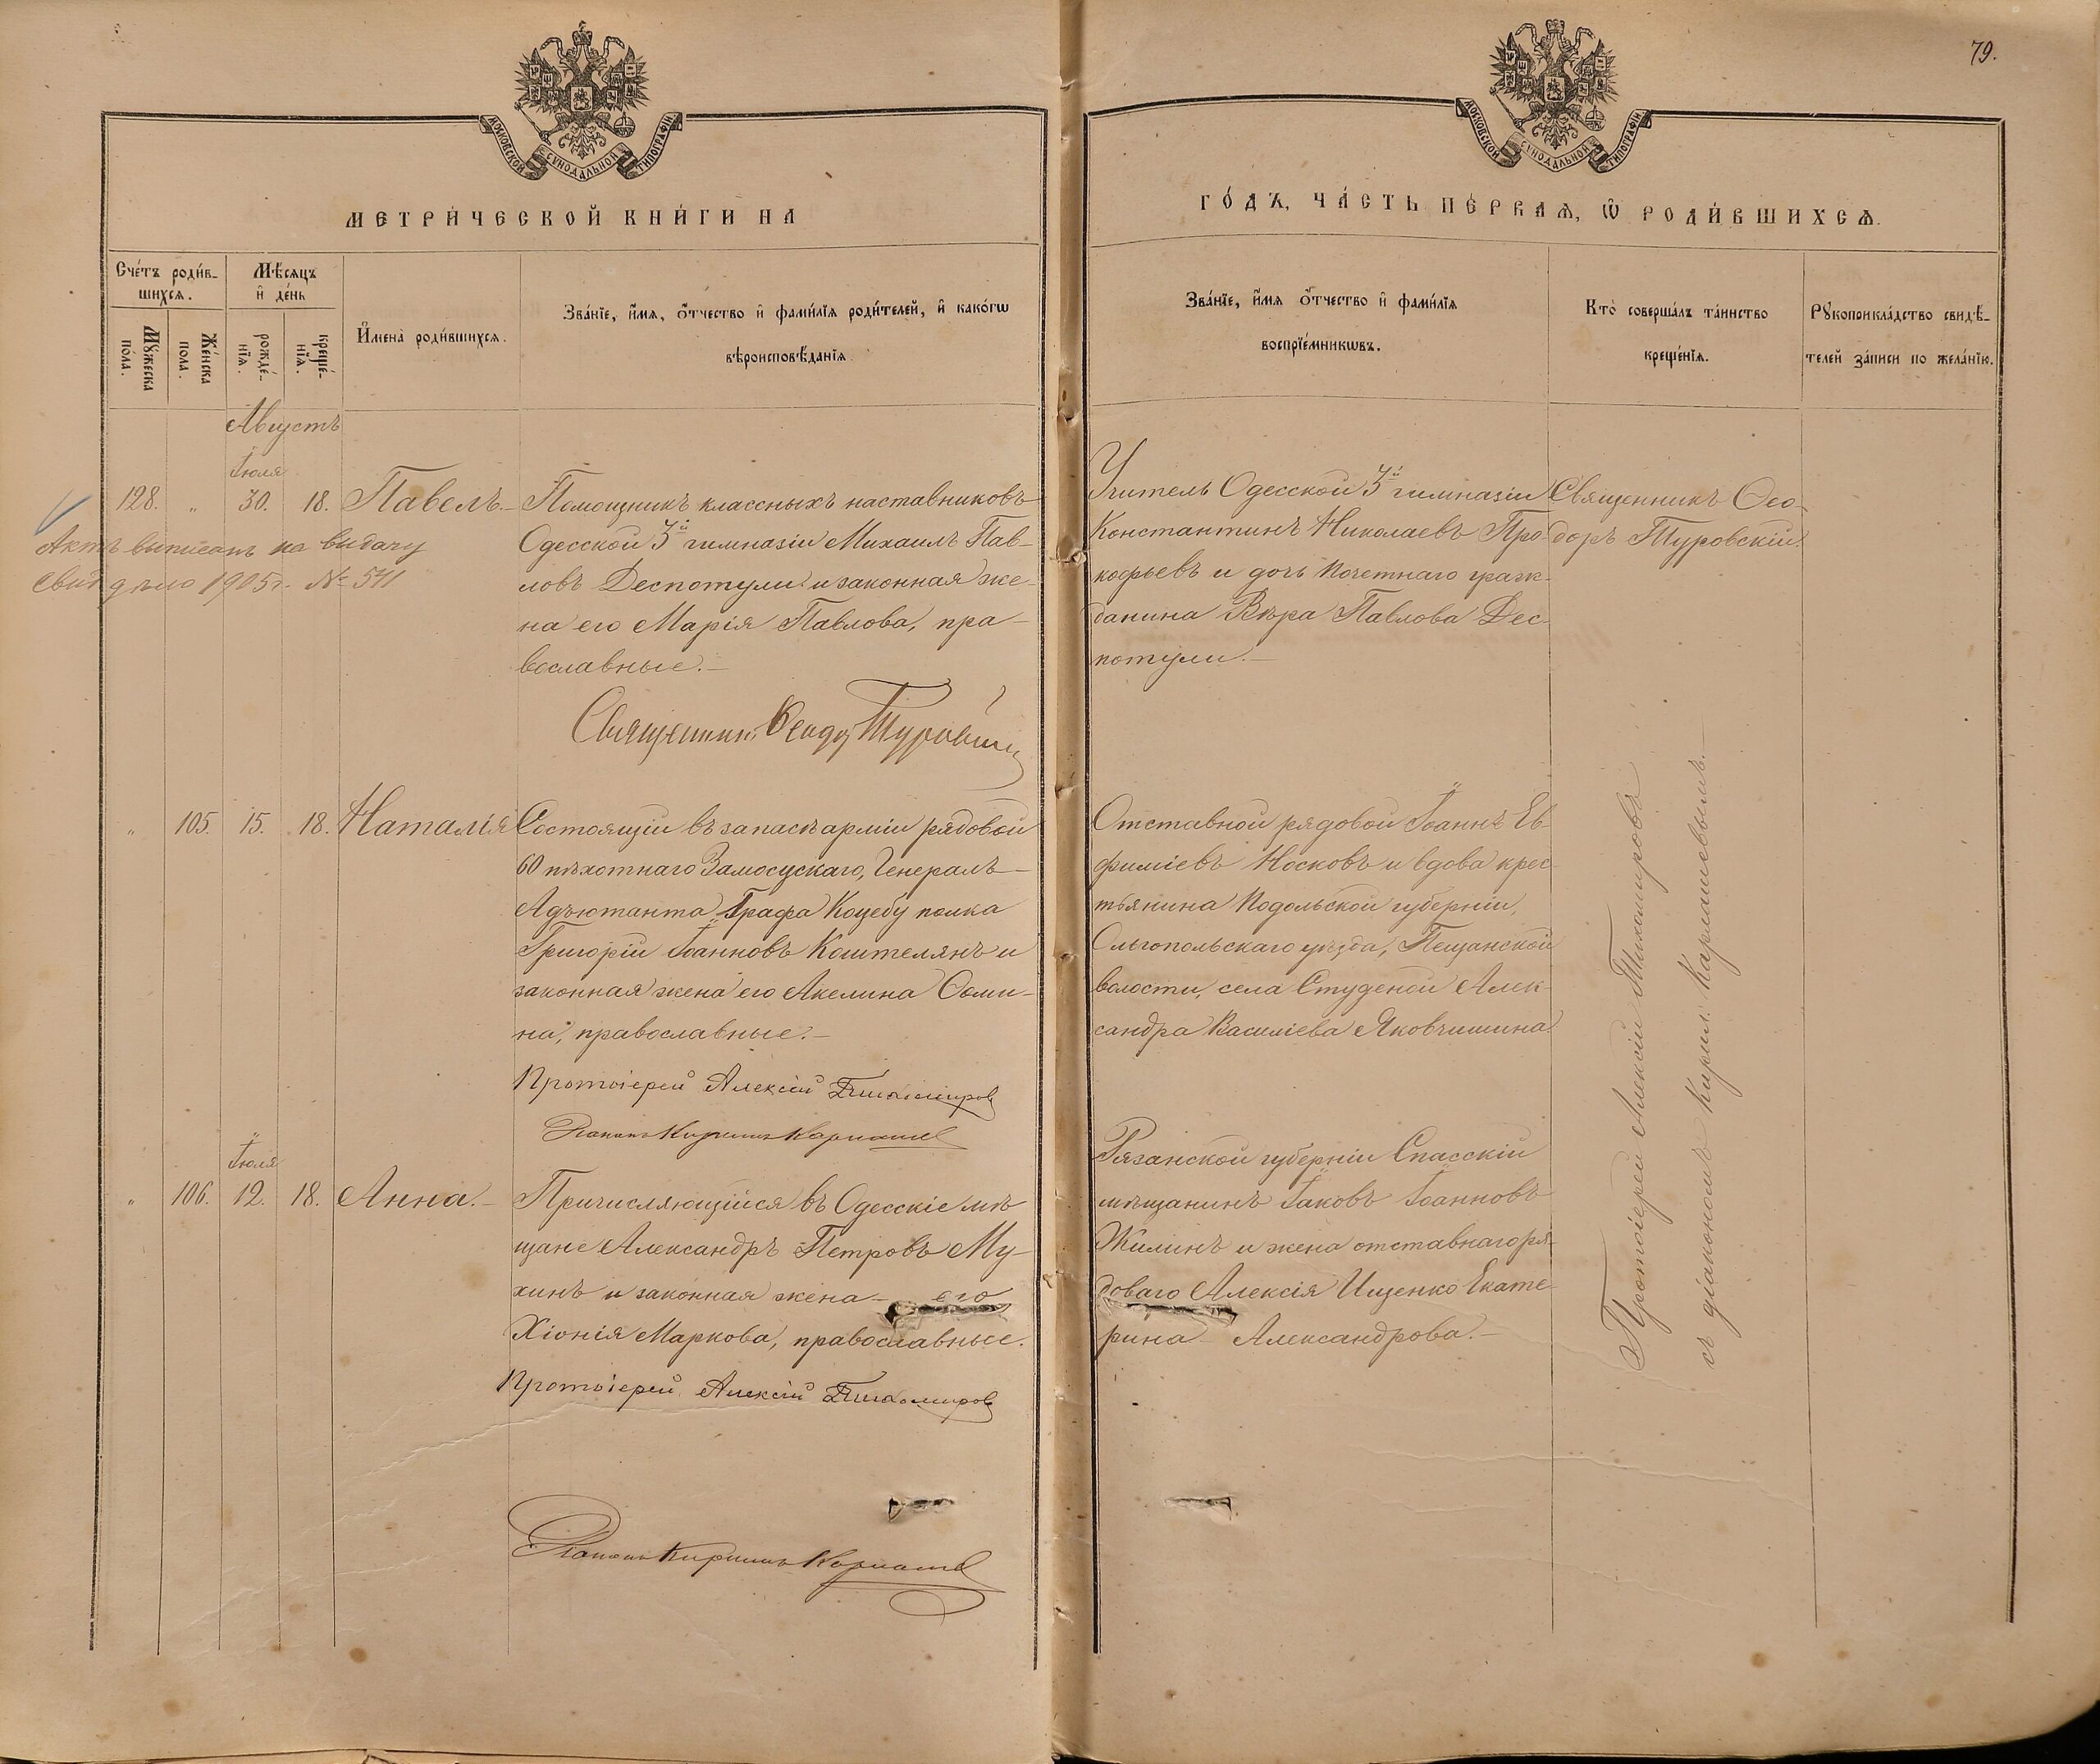 79.
МОСКОВСКОЙ СѴНОДАЛЬНОЙ ТИПОГРАФІИ
МОСКОВСКОЙ СѴНОДАЛЬНОЙ ТИПОГРАФІИ
МЕТРИ́ЧЕСКОЙ КНИ́ГИ НА
ГО́ДЪ, ЧА́СТЬ ПЕ́РВАѦ, Ѿ РОДИ́ВШИХСѦ.
Сче́тъ роди́в-
шихсѧ.
Мꙋ́жеска
по́ла.
Же́нска
пола.
Мѣ́сѧцъ
и҆ де́нь
рожде́-
нїѧ.
креще́-
нїѧ.
И҆мена̀ роди́вшихсѧ.
Зва́нїе, и҆́мѧ, ѻ҆́тчество и҆ фами́лїѧ роди́телей, и҆ како́гѡ
вѣроисповѣ́данїѧ.
Зва́нїе, и҆́мѧ ѻ҆́тчество и҆ фами́лїѧ
воспрїе́мникѡвъ.
Кто̀ соверша́лъ та́инство
креще́нїѧ.
Рꙋкоприкла́дство свидѣ́-
телей за́писи по жела́нїю.
Августъ
Іюля
128. " 30. 18. Павелъ.-
Помощникъ классныхъ наставниковъ
Одесской 3й гимназіи Михаилъ Пав-
ловъ Деспотули и законная же-
на его Марія Павлова, пра-
вославные.-
Актъ выписанъ на выдачу
свид дѣло 1905 г. № 541
Священникъ Ѳеодоръ Туровскій
Учитель Одесской 3й гимназіи
Константинъ Николаевъ Про-
кофьевъ и дочь почетнаго граж-
данина Вѣра Павлова Дес-
потули.-
Священникъ Ѳео-
доръ Туровскій.
" 105. 15. 18. Наталія
Состоящій въ запасѣ арміи рядовой
60 пѣхотнаго Замосцскаго, Генералъ-
Адъютанта Графа Коцебу полка
Григорій Іоанновъ Коштелянъ и
законная жена его Акелина Ѳоми-
на, православные.-
Протоіерей Алексій Тихомировъ
Діаконъ Кириллъ Кармашев
Отставной рядовой Іоаннъ Ев-
фиміевъ Носковъ и вдова крес-
тьянина Подольской губерніи,
Ольгопольскаго уѣзда, Пещанской
волости, села Студеной Алек-
сандра Василіева Яковчишина
Іюля
" 106. 12. 18. Анна.-
Причисляющійся въ Одесскіе мѣ
щане Александръ Петровъ Му-
хинъ и законная жена - его
Хіонія Маркова, православные.
Протоіерей Алексій Тихомировъ
Діаконъ Кириллъ Кармашев
Рязанской губерніи Спасскій
мѣщанинъ Іаковъ Іоанновъ
Жилинъ и жена отставнаго ря-
доваго Алексія Ищенко Екате-
рина Александрова.-
Протоіерей Алексій Тихомировъ
съ діакономъ Кирил. Кармашевымъ.-